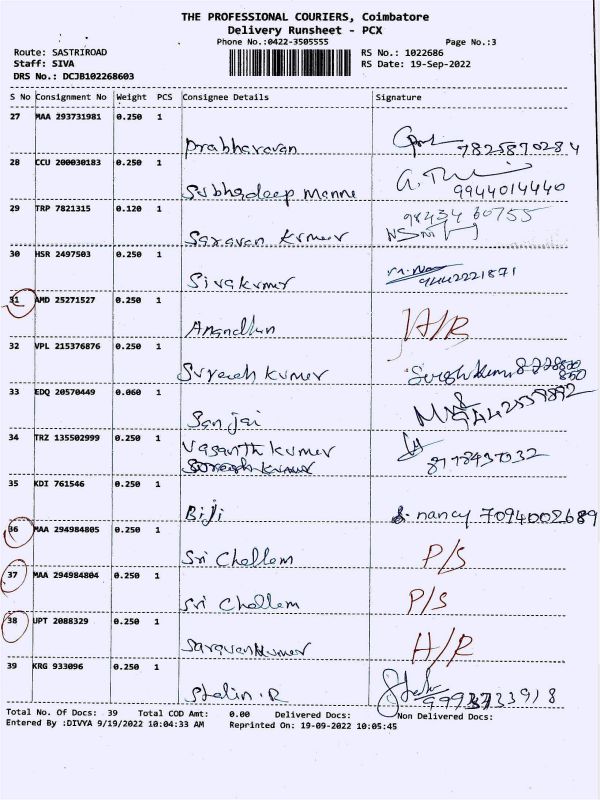 THE PROFESSIONAL COURIERS, Coimbatore
Delivery Runsheet - PCX
Phone No.:0422-3505555 Page No.:3
Route: SASTRIROAD RS No.: 1022686
Staff: SIVA RS Date: 19-Sep-2022
DRS No.: DCJB102268603
S No Consignment No Weight PCS Consignee Details Signature
27 MAA 293731981 0.250 1
Prabharavan 7825870284
28 CCU 200030183 0.250 1
Subhadeep Manne 9944014440
29 TRP 7821315 0.120 1 98434 60755
Saravan Kumar
30 HSR 2497503 0.250 1
Sivakumar 9442221871
31 AMD 25271527 0.250 1
Anandhan H/R
32 VPL 215376876 0.250 1
Suresh Kumar
33 EDQ 20570449 0.060 1
Sanjai
34 TRZ 135502999 0.250 1 Vasanth Kumar
Suresh Kumar 8778437032
35 KDI 761546 0.250 1
Biji nancy 7094002689
36 MAA 294984805 0.250 1
Sri Chellam P/S
37 MAA 294984804 0.250 1
Sri Chellam P/S
38 UPT 2088329 0.250 1
Saravankumar H/R
39 KRG 933096 0.250 1
Stalin.R
Total No. Of Docs: 39 Total COD Amt: 0.00 Delivered Docs: Non Delivered Docs:
Entered By :DIVYA 9/19/2022 10:04:33 AM Reprinted On: 19-09-2022 10:05:45